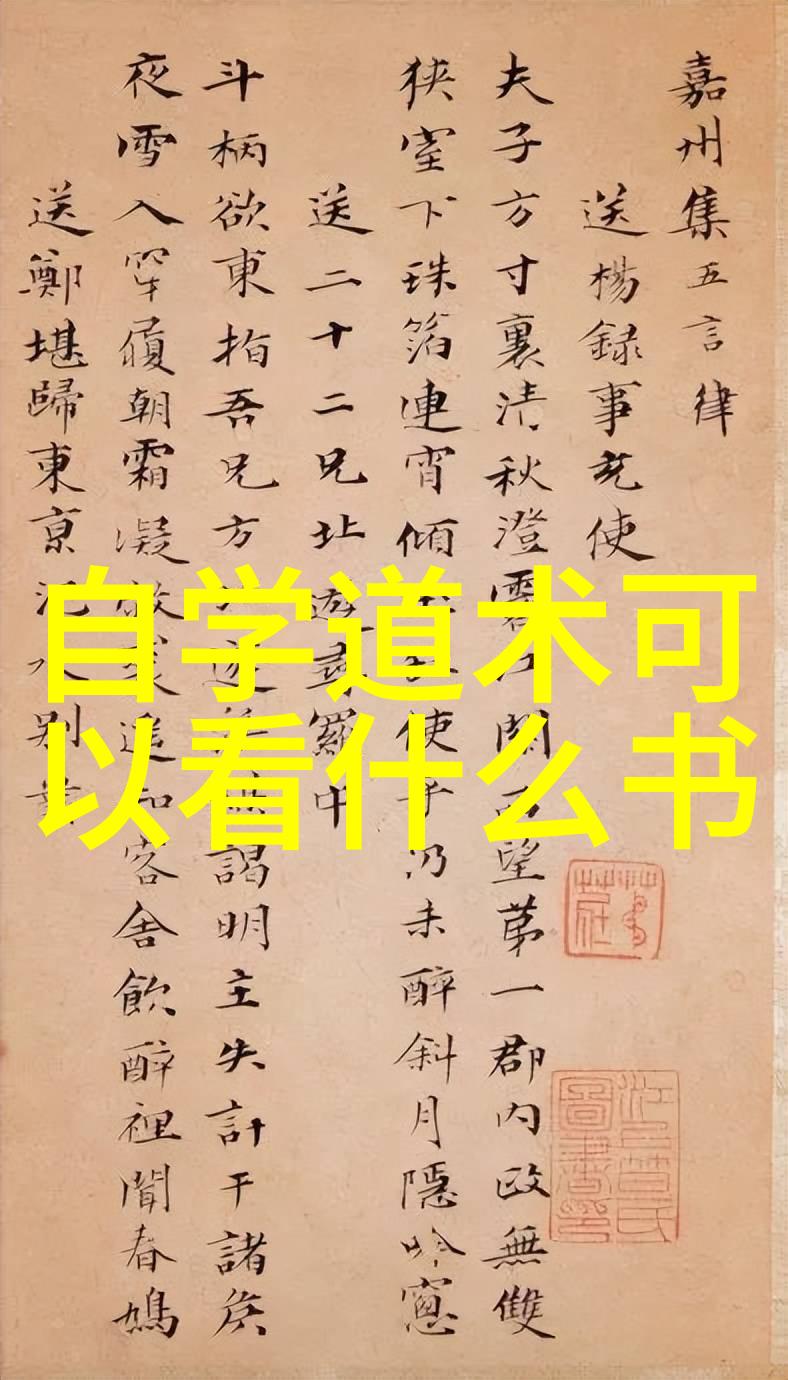 自学道术可
以看什么书
嘉州集五言律
送楊録事充使
夫子方寸裏清秋澄霽江関西望苐一郡内政無雙
狭室下珠箔連宵傾使乎仍未醉斜月隐吟窓
送二十二兄北遊尋羅中
斗柄欲東指吾兄方謁明主失計干諸侯
夜雪入穿履朝霜凝敝裘遥知客舎飲醉裡聞春鳩
送鄭堪歸東京汜水别業